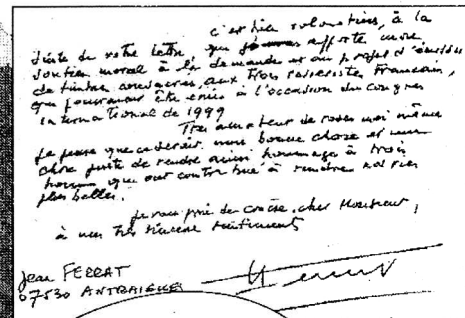 c'est bien volontiers, à la
suite de votre lettre que j'apporte mon
soutien moral à la demande et au projet d'émission
de timbres consacrés aux trois rosiéristes Français,
qui pourraient être émis à l'occasion du congrès
international de 1999
Très amateur de roses moi même
je pense que ce serait une bonne chose et une
chose juste de rendre ainsi hommage à trois
hommes qui ont contribué à rendre nos vies
plus belles.
je vous prie de croire, cher Monsieur,
à mes très sincères sentiments
Jean FERRAT
07530 ANTRAIGUES